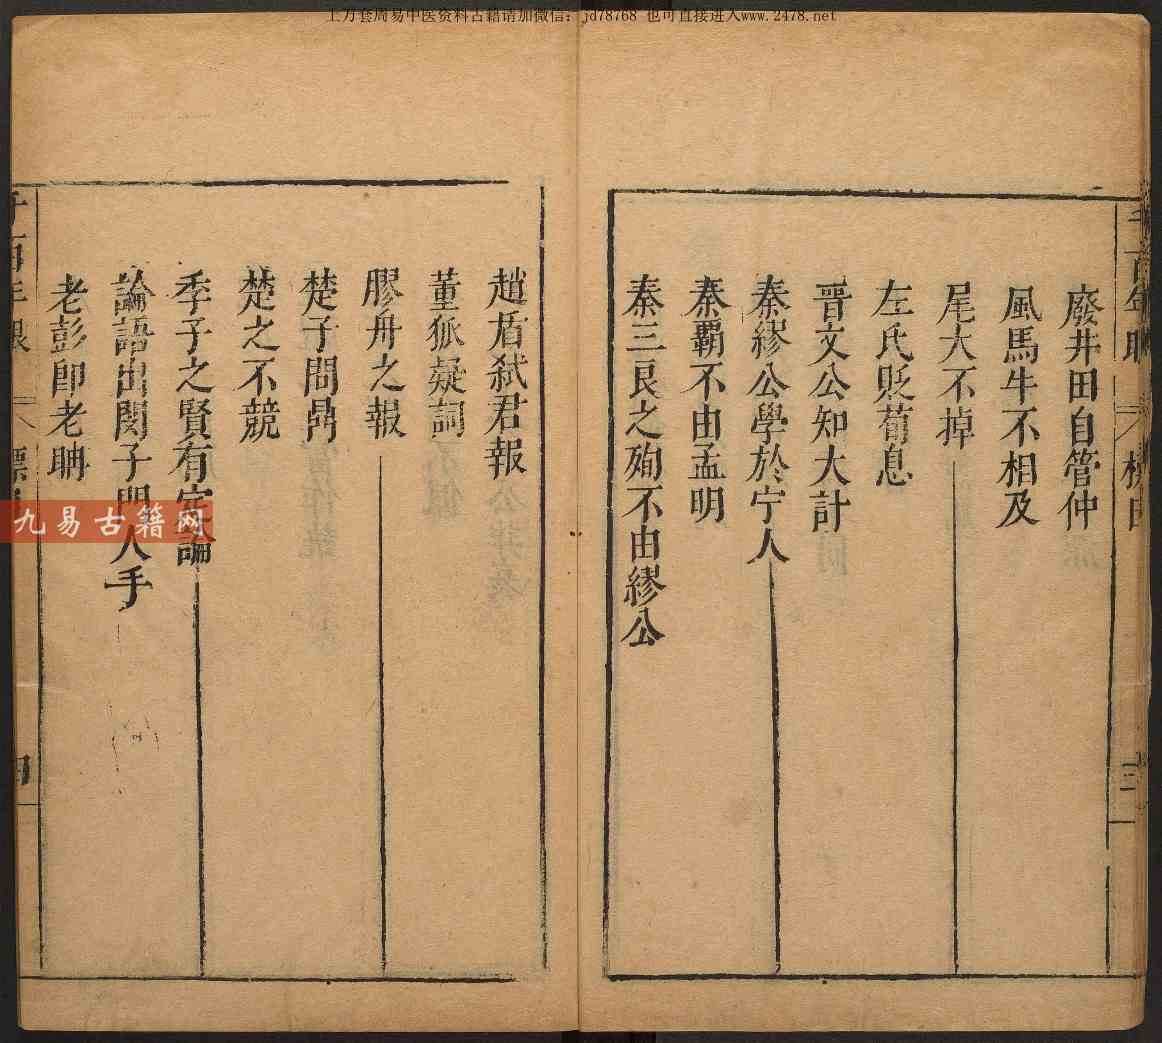 上万套周易中医资料古籍请加微信：jd78768 也可直接进入www.2478.net
廢井田自管仲
風馬牛不相及
尾大不掉
左氏貶荀息
晉文公知大計
秦繆公學於宁人
秦覇不由孟明
秦三良之殉不由繆公
三
趙盾弑君報
董狐疑詞
膠舟之報
楚子問鼎
楚之不競
季子之賢有定論
論語出閔子門人手
老彭卽老聃
九易古籍网